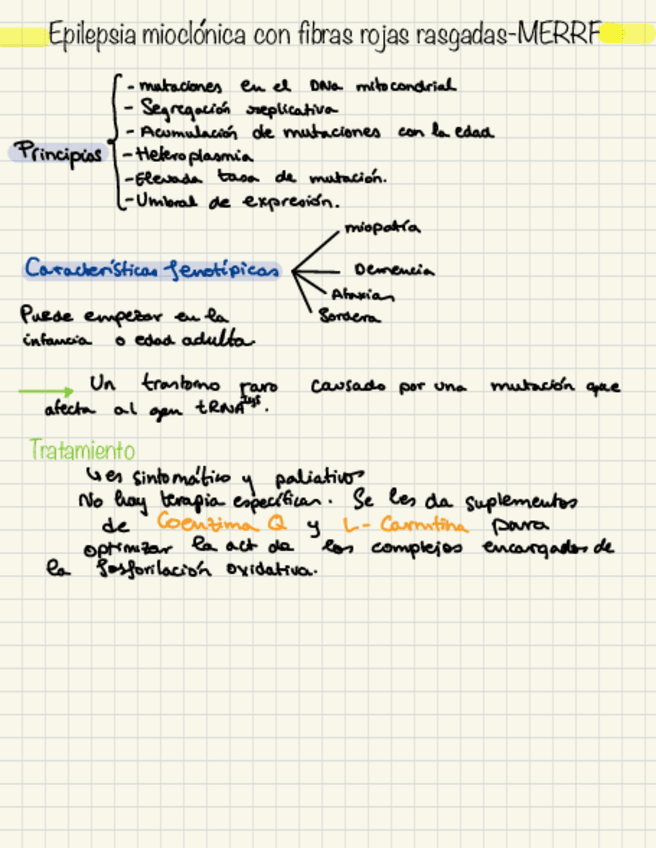 Epilepsia mioclónica con fibras rojas rasgadas-MERRF
Principios
- mutaciones en el DNA mitocondrial
- Segregación replicativa
- Acumulación de mutaciones con la edad
- Heteroplasmia
- Elevada tasa de mutación.
- Umbral de expresión.
Características fenotípicas
miopatía
Demencia
Ataxia
Sordera
Puede empezar en la
infancia o edad adulta.
Un trastorno raro causado por una mutación que
afecta al gen tRNA lys.
Tratamiento
↳ es sintomático y paliativo
No hay terapia específica. Se les da suplementos
de Coenzima Q y L-Carnitina para
optimizar la act de los complejos encargados de
la fosforilación oxidativa.